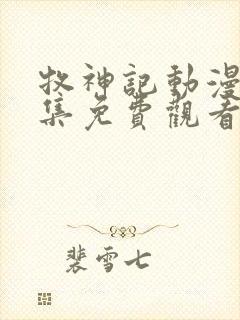 牧神記動漫
集免費觀看
裴雪七